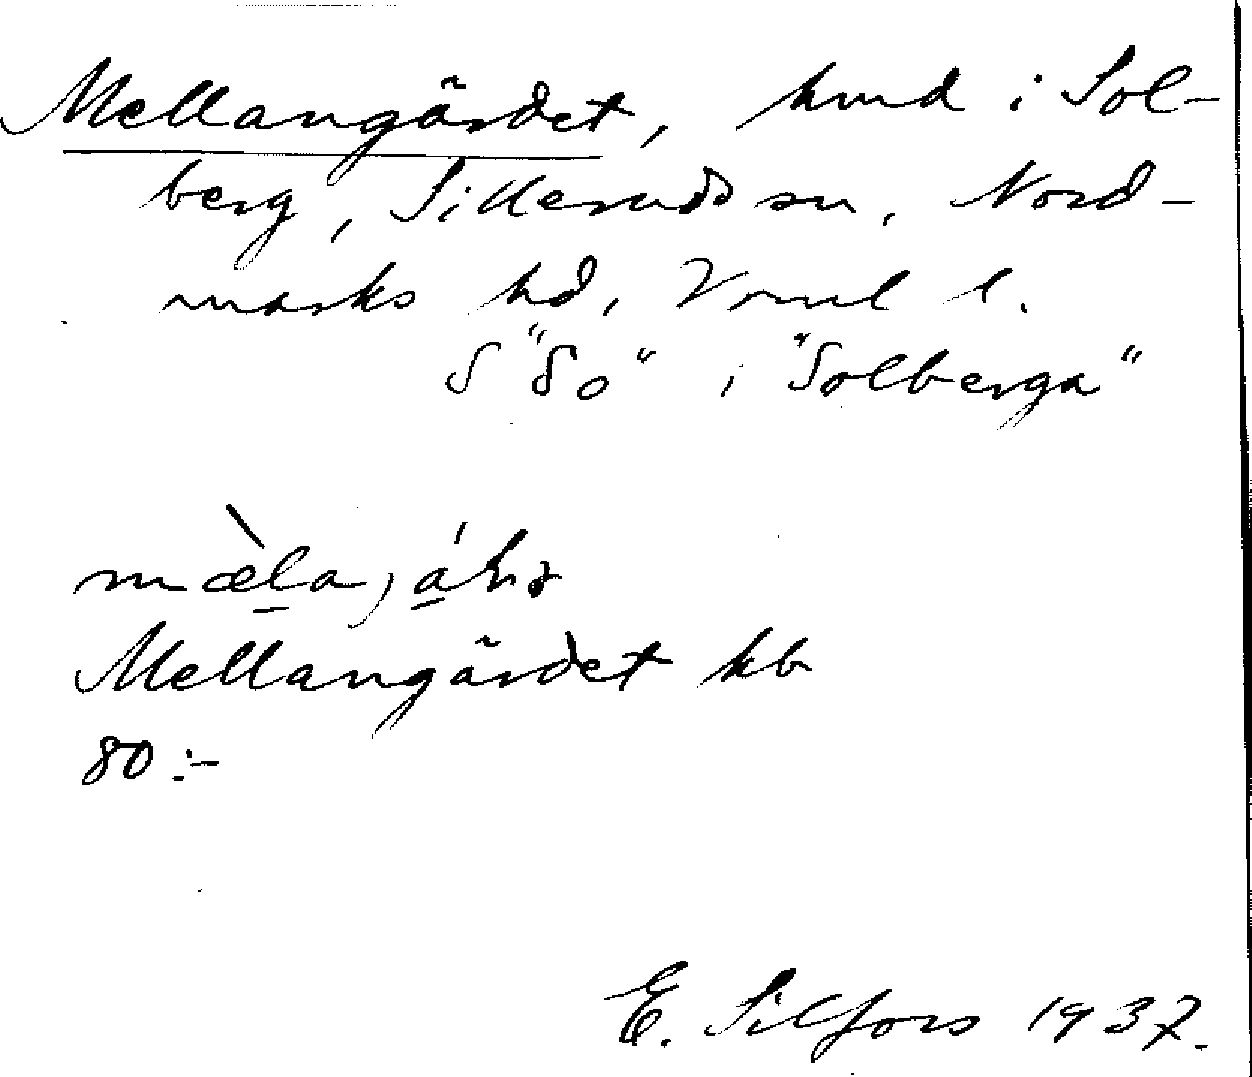 Mellangärdet, hmd i Sol-
berg, Silleruds sn, Nord-
marks hd, Vrml l.
S "So" i "Solberga"
mæ̀la, 
Mellangärdet kb
80:-
E. Silfors 1937.